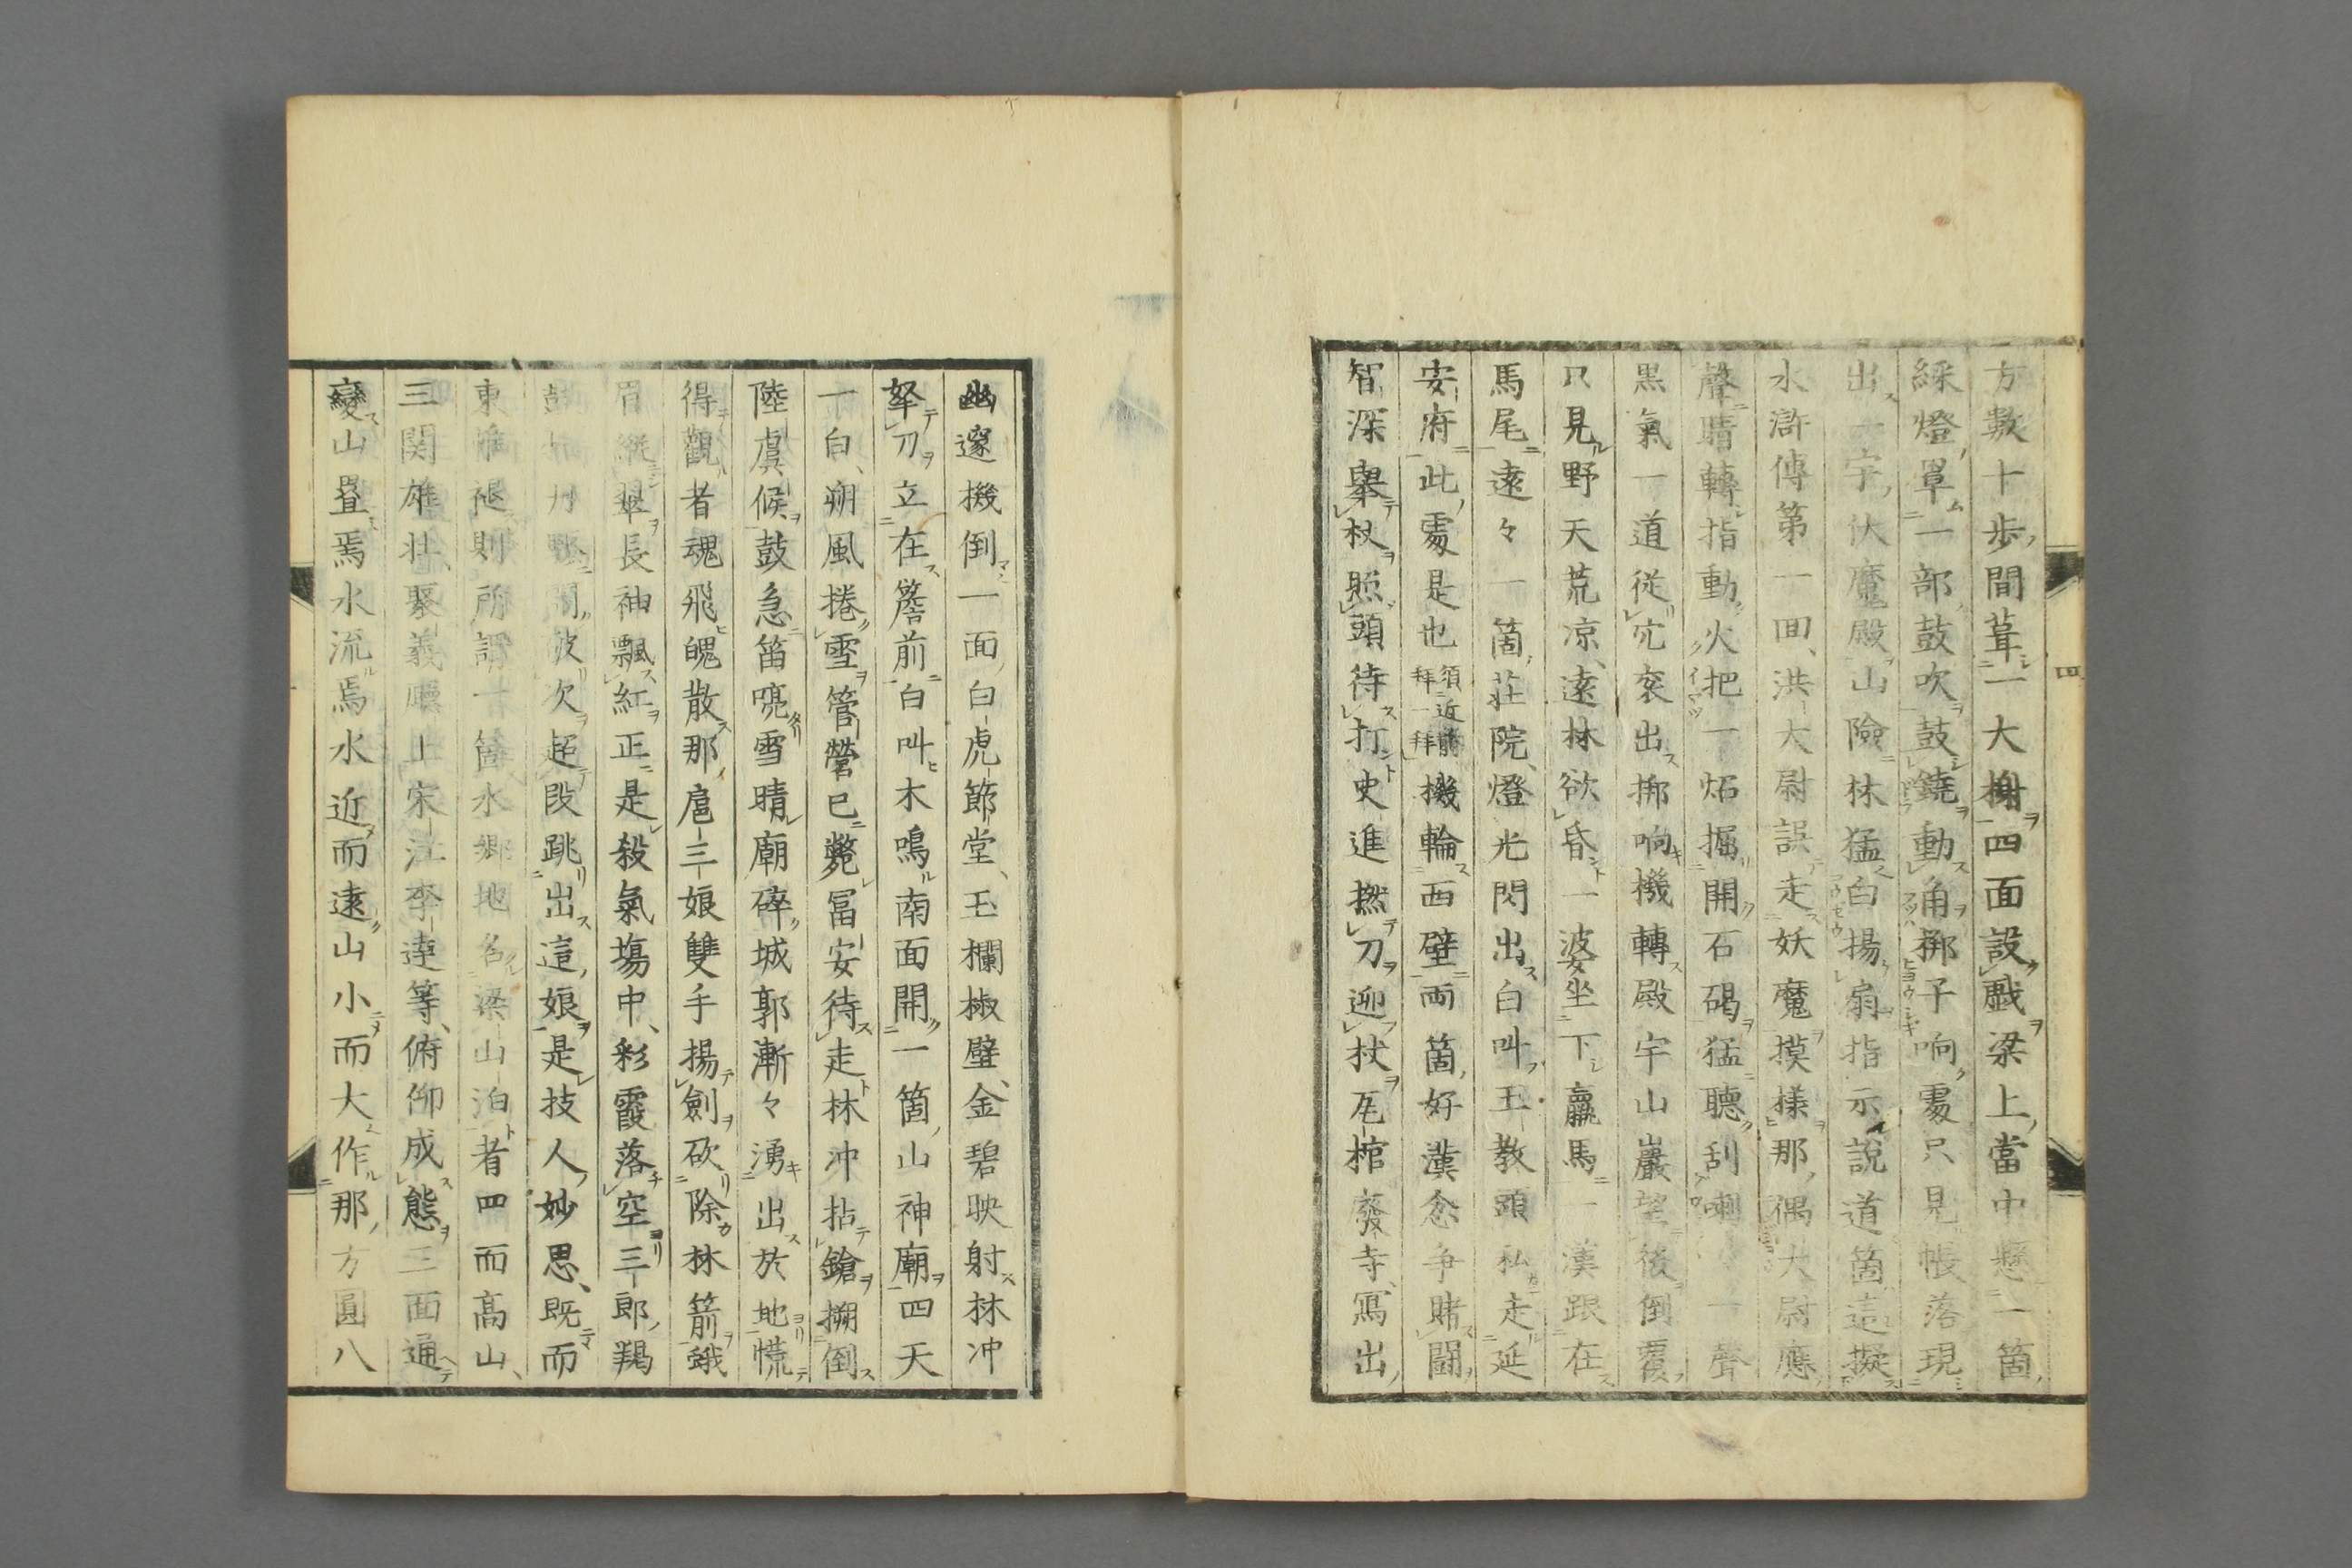 方數十歩間葺一大榭四面設戲梁上當中懸一箇
綵燈罩一部鼓吹鼓鐃動角梆子响處只見帳落現
出一宇伏魔殿山險林猛白揚扇指示說道箇這擬
水滸傳第一回洪大尉誤走妖魔摸樣那偶大尉應
聲睛轉指動火把一炻掘開石碣猛聽刮喇一聲
黒氣一道從穴衮出梆响機轉殿宇山巖望後倒覆
只見野天荒凉遠林欲昏一婆坐下羸馬一漢跟在
馬尾遠々一箇莊院燈光閃出白叫王教頭私走延
安府此處是也須近前拜一拜機輪西壁両箇好漢忿争賭鬪
智深擧杖照頭待打史進撚刀迎杖瓦棺癈寺寫出
四
幽邃機倒一面白虎節堂玉欄椒壁金碧映射林冲
拏刀立在簷前白叫木鳴南面開一箇山神廟四天
一白朔風捲雪管營已斃冨安待走林冲拈鎗搠倒
陸虞候鼓急笛喨雪晴廟碎城郭漸々湧出於地慌
得觀者魂飛魄散那扈三娘雙手揚劍砍除林箭蛾
眉縱翠長袖飄紅正是殺氣塲中彩霞落空三郎羯
鼓 破次超段跳出這娘是技人妙思既而
東帷褪則所謂一箇水郷地名梁山泊者四而高山
三関雄壮聚義廳上宋江李逵等俯仰成態三面通
變山疊焉水流焉水近而遠山小而大作那方圓八